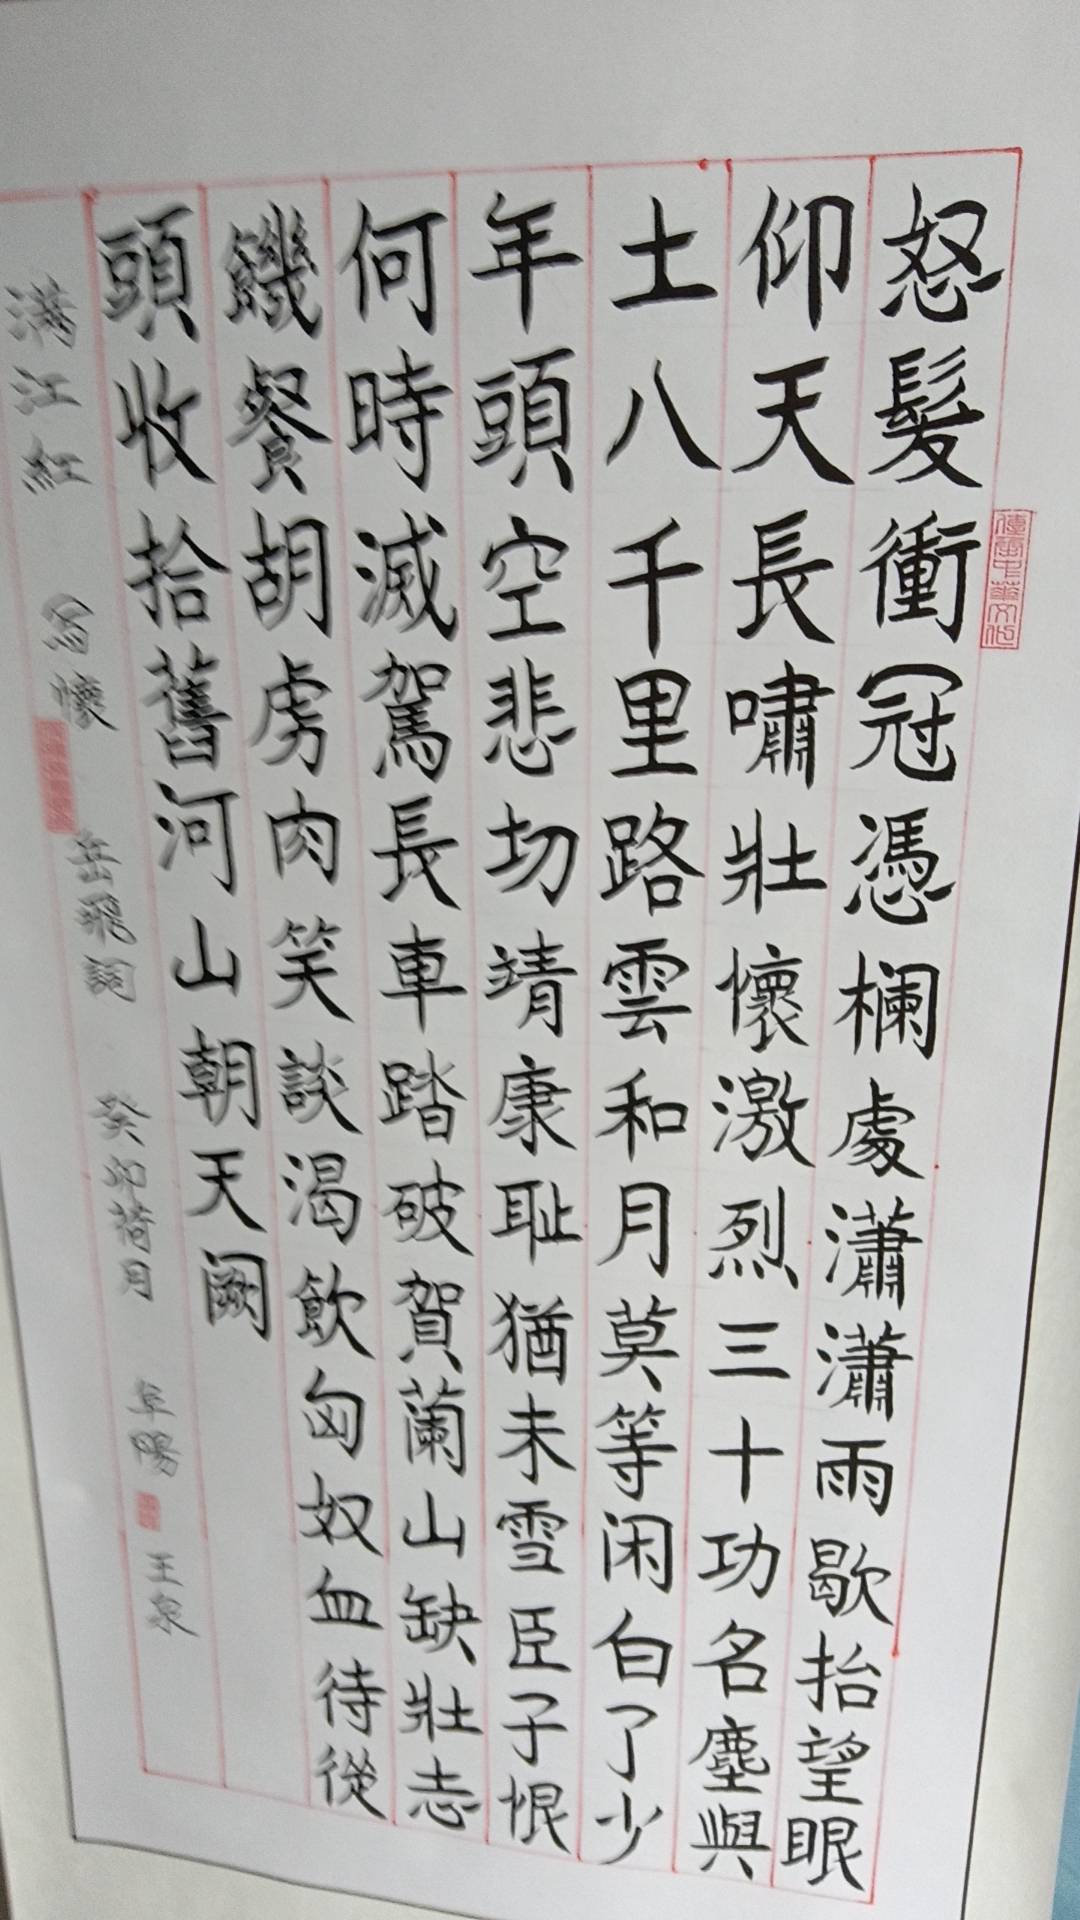 怒髮衝冠憑欄處瀟瀟雨歇抬望眼
仰天長嘯壯懷激烈三十功名塵與
土八千里路雲和月莫等閑白了少
年頭空悲切靖康耻猶未雪臣子恨
何時滅駕長車踏破賀蘭山缺壯志
饑餐胡虜肉笑談渴飲匈奴血待從
頭收拾舊河山朝天闕
滿江紅 寫懷 岳飛詞 癸卯荷月 阜陽 王泉